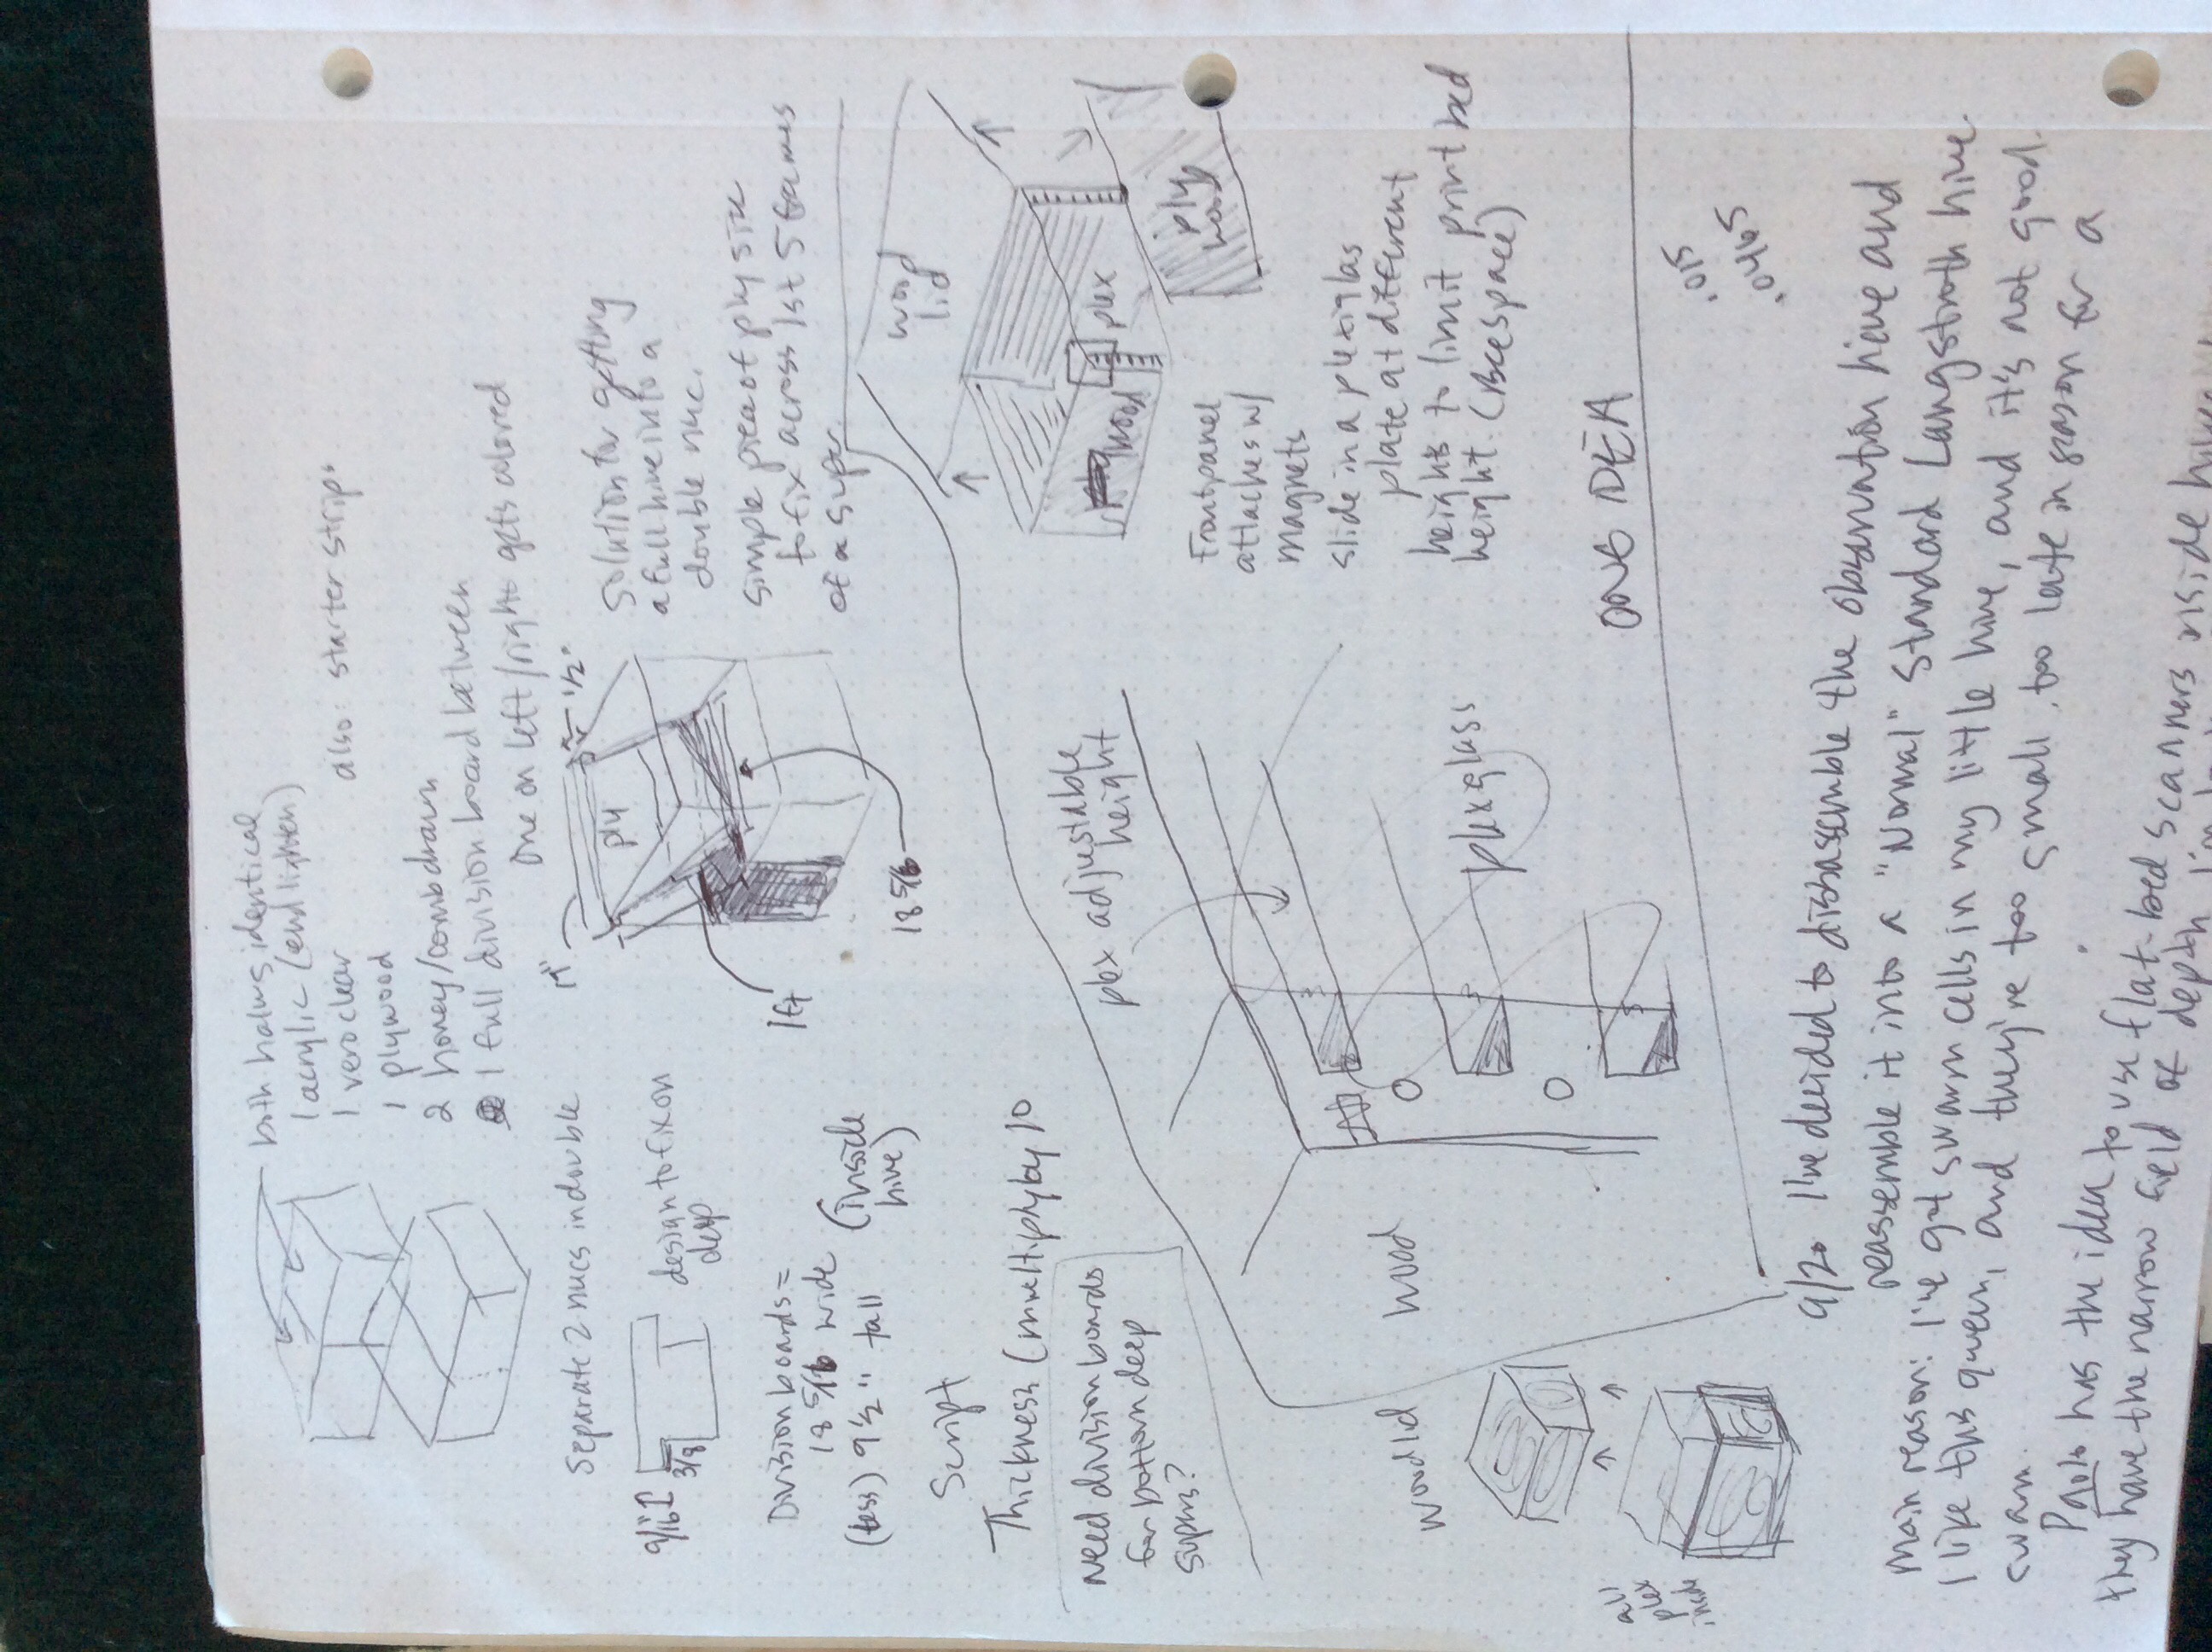 both halves identical
1 acrylic (endlisten)
1 veroclear
1 plywood
2 honey/comb drawn
1 full division board between
one on left/right gets colored
also: starter strips
Separate 2 nucs in double
9/16"
3/8
design to fix on
deep
Division boards =
18 5/16 wide (inside
hive)
(less) 9 1/2" tall
Script
Thickness (multiply by 10
need division boards
for bottom deep
supers?
1"
1/2"
ply
1 ft
18 5/16
Solution for getting
a full hive into a
double nuc.
simple piece of ply size
to fix across 1st 5 frames
of a super
wood
lid
plex
wood
ply
wood
Front panel
attaches w/
magnets
slide in a plexiglas
plate at different
heights to limit print bed
height. (Beespace)
plex adjustable
height
plexglass
wood
wood lid
all
plex
inside
ONG IDEA
.015
.0465
9/20 I've decided to dissasemble the observation hive and
reassemble it into a "Normal" Standard Langstroth hive.
main reason: I've got swarm cells in my little hive, and it's not good.
I like this queen, and they're too small, too late in season for a
swarm.
has the idea to use flat bed scanners inside hive
they have the narrow field of depth